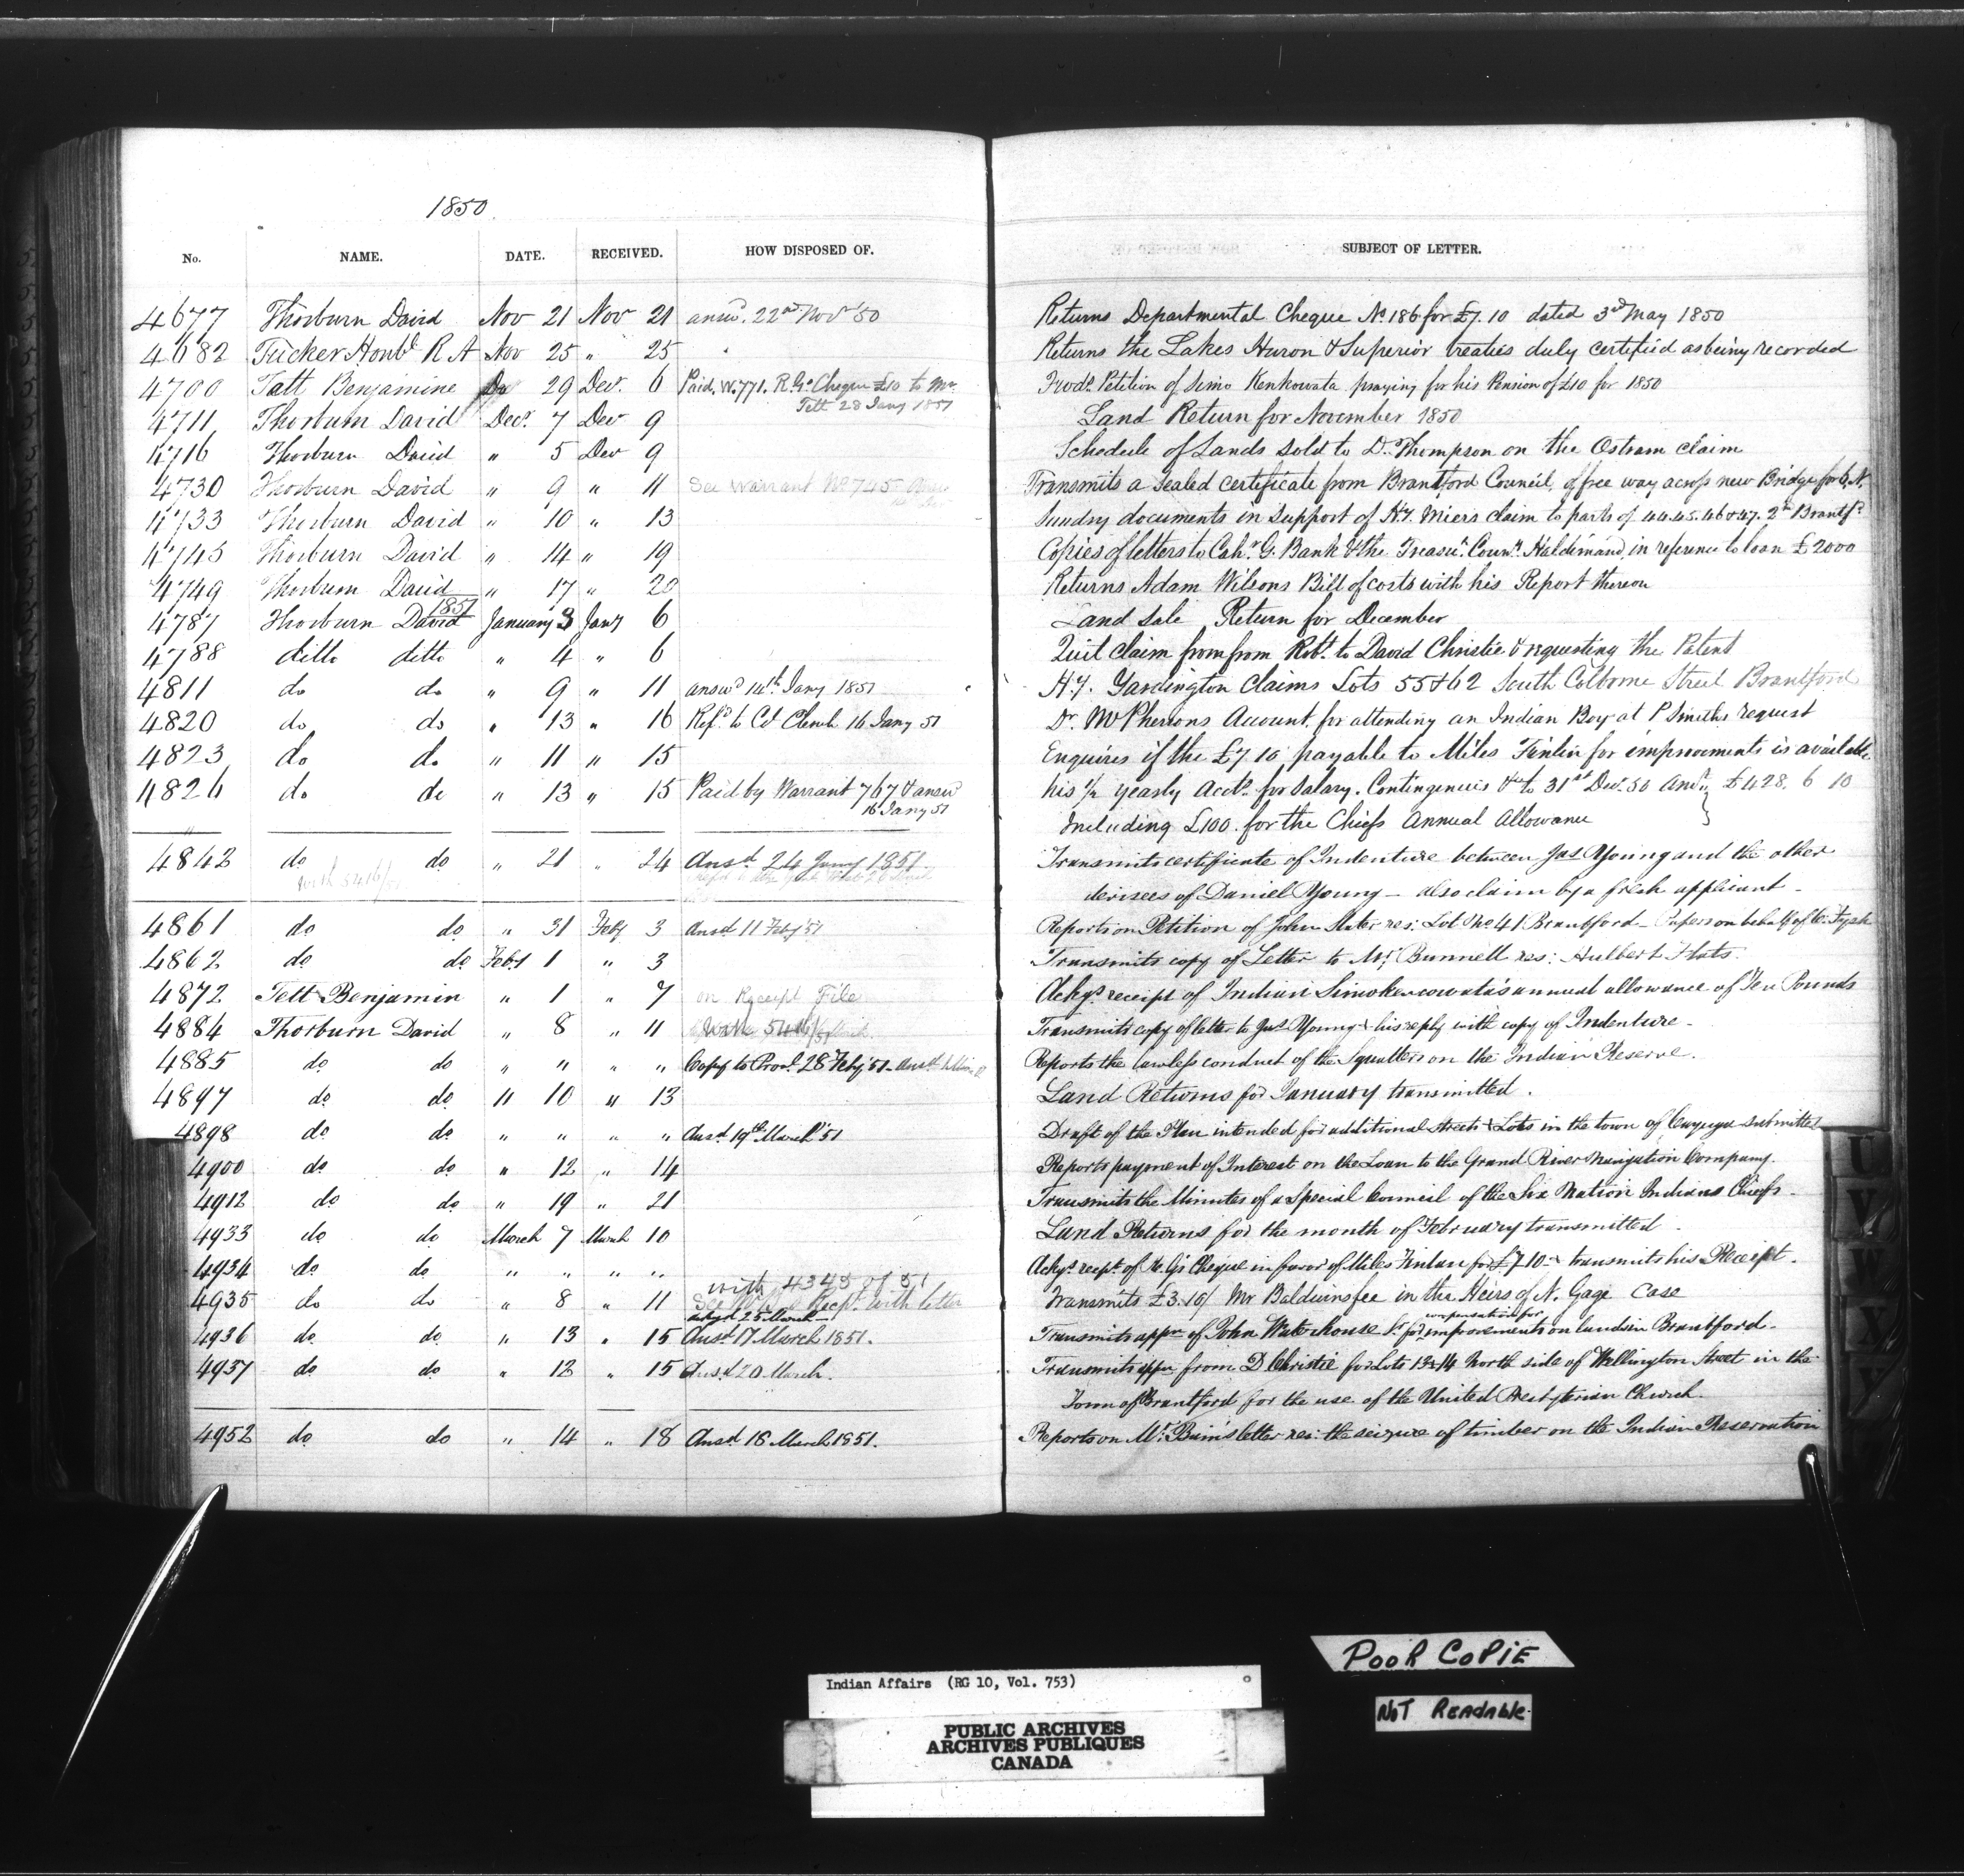 1850
No. NAME. DATE. RECEIVED. HOW DISPOSED OF. SUBJECT OF LETTER.
4677 Thorburn David Nov 21 Nov 21 answ. 22nd Nov '50 Returns Departmental Cheque No 186 for £7.10 dated 3rd May 1850
4682 Tucker Honbl R A Nov 25 " 25 Returns the Lakes Huron & Superior treaties duly certified as being recorded
4700 Tatt Benjamine 29 Decr. 6 Paid. W. 771. R. Gs Cheque £10 to Mr Petition of Simo Kenkowata praying for his Pension of £10 for 1850
Tett 28 Jany 1851
4711 Thorburn David Decr. 7 Decr 9 Land Return for November 1850
4716 Thorburn David " 5 Decr 9 Schedule of Lands sold to D. Thompson on the Ostram claim
4730 Thorburn David " 9 " 11 See Warrant No 745 Transmits a Sealed certificate from Brantford Council, of free way across new Bridge for 6. N.
4733 Thorburn David " 10 " 13 Sundry documents in support of H.Y. Miers claim to parts of 44.45.46 & 47. 2nd Brantfd
4745 Thorburn David " 14 " 19 Copies of letters to Cahr. G. Bank & the Treasr. Counr. Haldimand in reference to loan £2000
4749 Thorburn David " 17 " 20 Returns Adam Wilsons Bill of costs with his Report thereon
1851
4787 Thorburn David January 3 Jany 6 Land Sale Return for December
4788 ditto ditto " 4 " 6 Quit claim from from Robt. to David Christie & requesting the Patent
4811 do do " 9 " 11 answd 14th Jany 1851 H.Y. Yardington Claims Lots 55 & 62 South Colborne Street Brantford
4820 do do " 13 " 16 Refd to Cl Clench 16 Jany 51 Dr. McPhersons Account for attending an Indian Boy at P Smiths request
4823 do do " 11 " 15 Enquires if the £7.10 payable to Miles Finlin for improvements is available
4826 do do " 13 " 15 Paid by Warrant 767 & answd his 1/2 yearly Accts. for Salary. Contingencies &c to 31st Decr. 50 £428. 6 10
16 Jany 51 Including £100. for the Chiefs Annual Allowance
4842 do do " 21 " 24 Ansd 24 Jany 1851. Transmits certificate of Indenture between Jas Young and the other
with 5416/51 devisees of Daniel Young – also claim by a fresh applicant –
4861 do do " 31 Feby 3 Ansd 11 Feby '51 Reports on Petition of John Slater res: Lot No 41 Brantford – Papers on behalf of
4862 do do Feby 1 " 3 Transmits copy of Letter to Mr. Bunnell res: Hulbert Flats.
4872 Tett Benjamin " 1 " 7 on Receipt File Ackgs receipt of Indian Simokencowata's annual allowance of Ten Pounds
4884 Thorburn David " 8 " 11 With 5416/51 Transmits copy of letter to Jas Young & his reply with copy of Indenture –
4885 do do " " " " Copy to Provl. 28 Feby '51 – Ansd Reports the lawless conduct of the Squatters on the Indian Reserve.
4897 do do " 10 " 13 Land Returns for January transmitted.
4898 do do " " " " Ansd 19th March '51 Draft of the Plan intended for additional streets & Lots in the town of Cayuga submitted
4900 do do " 12 " 14 Reports payment of Interest on the Loan to the Grand River Navigation Company.
4912 do do " 19 " 21 Transmits the Minutes of a Special Council of the Six Nation Indians Chiefs –
4933 do do March 7 March 10 Land Returns for the month of February transmitted –
4934 do do " " " " Ackgs recpt. of R. G's Cheque in favor of Miles Finlan for £7.10 – & transmits his Receipt.
with 4345 of 51
4935 do do " 8 " 11 See Recpt. with letter Transmits £3.10/ Mr Baldwins fee in the Heirs of N. Gage Case
ackgd 25 March – compensation for
4936 do do " 13 " 15 Ansd 17 March 1851. Transmits appn of John Waterhouse Sr for improvements on lands in Brantford –
4937 do do " 12 " 15 Ansd 20 March. Transmits appn from D Christie for Lots 13 & 14 North side of Wellington Street in the
Town of Brantford for the use of the United Presbyterian Church.
4952 do do " 14 " 18 Ansd 18 March 1851. Reports on Mr. Bain's letter res: the seizure of timber on the Indian Reservation
U
V
W
X
Y
POOR COPIE
NOT READABLE
Indian Affairs (RG 10, Vol. 753)
PUBLIC ARCHIVES
ARCHIVES PUBLIQUES
CANADA